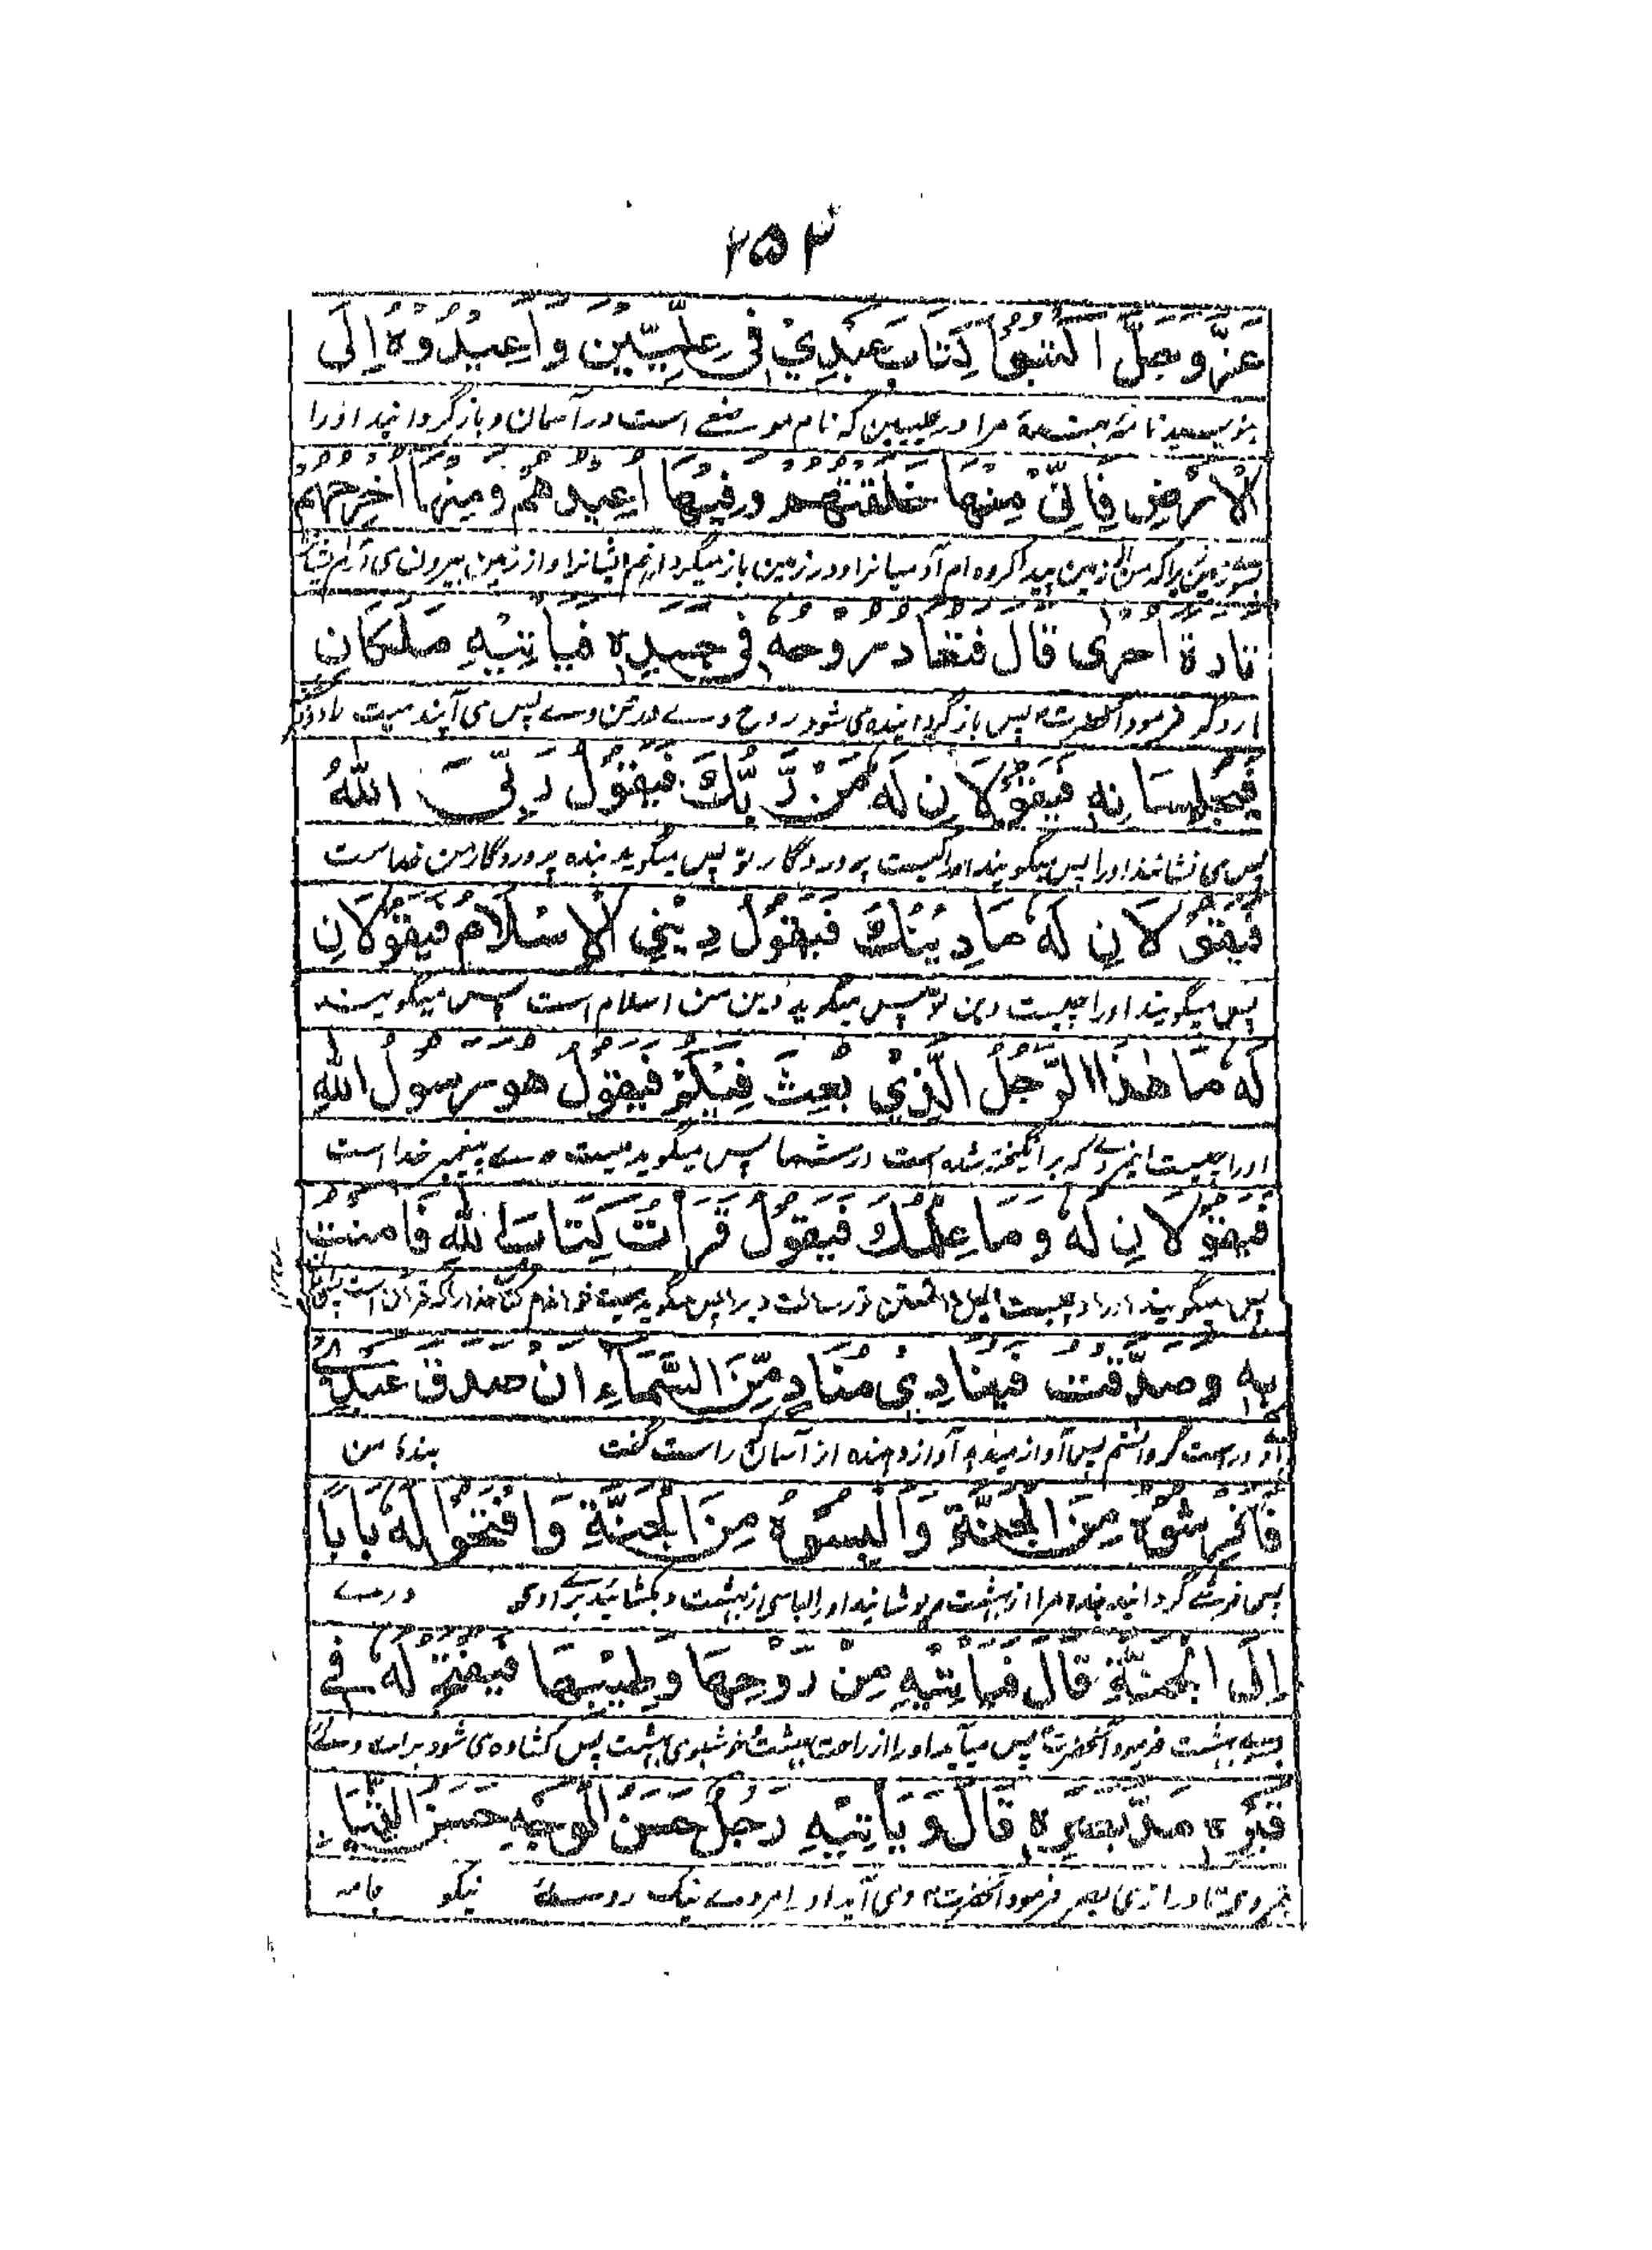 ۲۵۳
عَزَّ وَجَلَّ اكْتُبُوْا كِتَابَ عَبْدِيْ فِي عِلِّيِّيْنَ وَاَعِيْدُوْهُ اِلَى
بنویسید نامۀ بندۀ مرا در علیین که نام موضعے است در آسمان و باز گردانید او را
الْاَرْضِ فَاِنِّيْ مِنْهَا خَلَقْتُهُمْ وَفِيْهَا اُعِيْدُهُمْ وَمِنْهَا اُخْرِجُهُمْ
بسوے زمین زیرا که من از زمین پیدا کرده ام آدمیانرا و در زمین باز میگردانم ایشانرا و از زمین بیرون می آرم ایشانرا
تَارَةً اُخْرٰى قَالَ فَتُعَادُ رُوْحُهٗ فِي جَسَدِهٖ فَيَاْتِيْهِ مَلَكَانِ
بار دگر فرمود آنحضرت پس باز گردانیده می شود روح وے در تن وے پس می آیند میت را دو
فَيُجْلِسَانِهٖ فَيَقُوْلَانِ لَهٗ مَنْ رَّبُّكَ فَيَقُوْلُ رَبِّيَ اللّٰهُ
پس می نشانند او را پس میگویند او را کیست پروردگار تو پس میگوید بنده پروردگار من خداست
فَيَقُوْلَانِ لَهٗ مَا دِيْنُكَ فَيَقُوْلُ دِيْنِيَ الْاِسْلَامُ فَيَقُوْلَانِ
پس میگویند او را چیست دین تو پس میگوید دین من اسلام است پس میگویند
لَهٗ مَا هٰذَا الرَّجُلُ الَّذِيْ بُعِثَ فِيْكُمْ فَيَقُوْلُ هُوَ رَسُوْلُ اللّٰهِ
او را چیست اینمردے که بر انگیخته شده است در شما پس میگوید میت وے پیغمبر خدا است
فَيَقُوْلَانِ لَهٗ وَمَا عِلْمُكَ فَيَقُوْلُ قَرَأْتُ كِتَابَ اللّٰهِ فَاٰمَنْتُ
پس میگویند او را و چیست تو رسالت ویرا پس میگوید میت خواندم کتاب خدا را که قرآن است
بِهٖ وَصَدَّقْتُ فَيُنَادِيْ مُنَادٍ مِّنَ السَّمَاءِ اَنْ صَدَقَ عَبْدِيْ
و درست گرد داشتم پس آواز میدهد آواز دهنده از آسمان که راست گفت بندۀ من
فَافْرِشُوْهُ مِنَ الْجَنَّةِ وَاَلْبِسُوْهُ مِنَ الْجَنَّةِ وَافْتَحُوْا لَهٗ بَابًا
پس فرشے گردانید بنده مرا از بهشت و بپوشانید او را لباسی از بهشت و بکشائید برای وی درے
اِلَى الْجَنَّةِ قَالَ فَيَاْتِيْهِ مِنْ رَوْحِهَا وَطِيْبِهَا فَيُفْتَحُ لَهٗ فِي
بسوے بهشت فرمود آنحضرت پس میآید او را از راحت بهشت و خوشبوی بهشت پس کشاده می شود برای وے
قَبْرِهٖ مَدَّ بَصَرِهٖ قَالَ وَيَاْتِيْهِ رَجُلٌ حَسَنُ الْوَجْهِ حَسَنُ الثِّيَابِ
قبر وی تا درازی بصر فرمود آنحضرت و می آید او را مردے نیک روے نیکو جامه